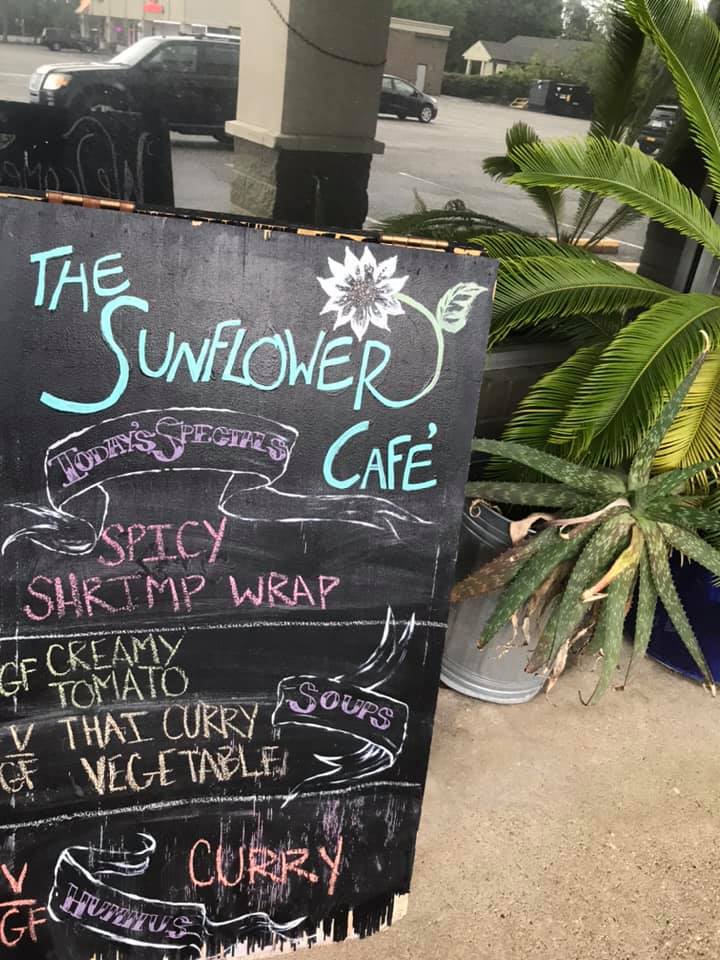 THE
SUNFLOWER
CAFÉ
TODAY'S SPECIALS
SPICY
SHRIMP WRAP
GF CREAMY
TOMATO
SOUPS
V THAI CURRY
GF VEGETABLE
V
GF
HUMMUS
CURRY